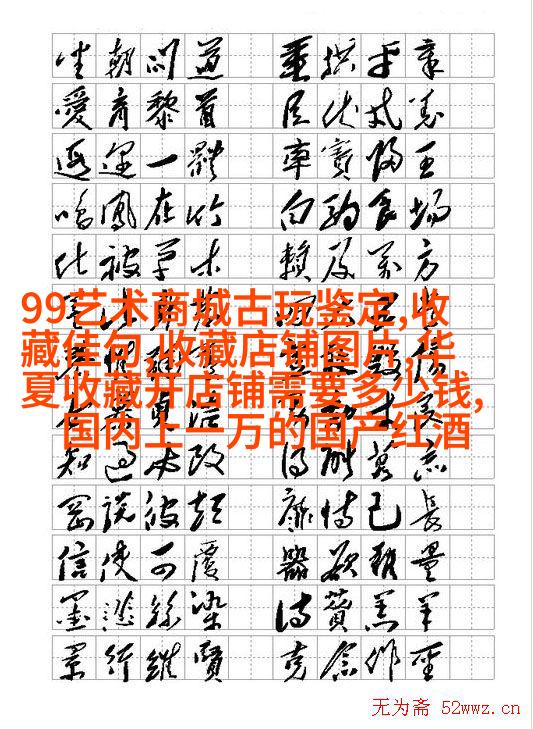 坐朝問道 垂拱平章
愛育黎首 臣伏戎羌
遐迩一體 率賓歸王
鳴鳳在竹 白駒食場
化被草木 賴及萬方
99艺术商城古玩鉴定,收
藏佳句,收藏店铺图片,华
夏收藏开店铺需要多少钱,
国内上一万的国产红酒
知過必改 得能莫忘
罔談彼短 靡恃己長
信使可覆 器欲難量
墨悲絲染 詩贊羔羊
景行維賢 克念作聖
无为斋 52wwz.cn